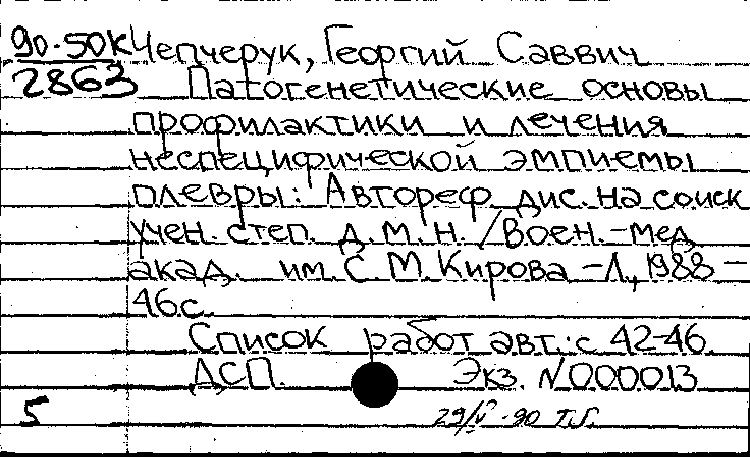 90-50К Чепчерук, Георгий Саввич
2863 Патогенетические основы
профилактики и лечения
неспецифической эмпиемы
плевры: Автореф. дис. на соиск
учен. степ. д.м.н. / Воен.-мед.
акад. им. С.М.Кирова - Л., 1988 -
46с.
Список работ авт.: с. 42-46.
ДСП. Экз. N000013
5 29/V-90 Т.Б.